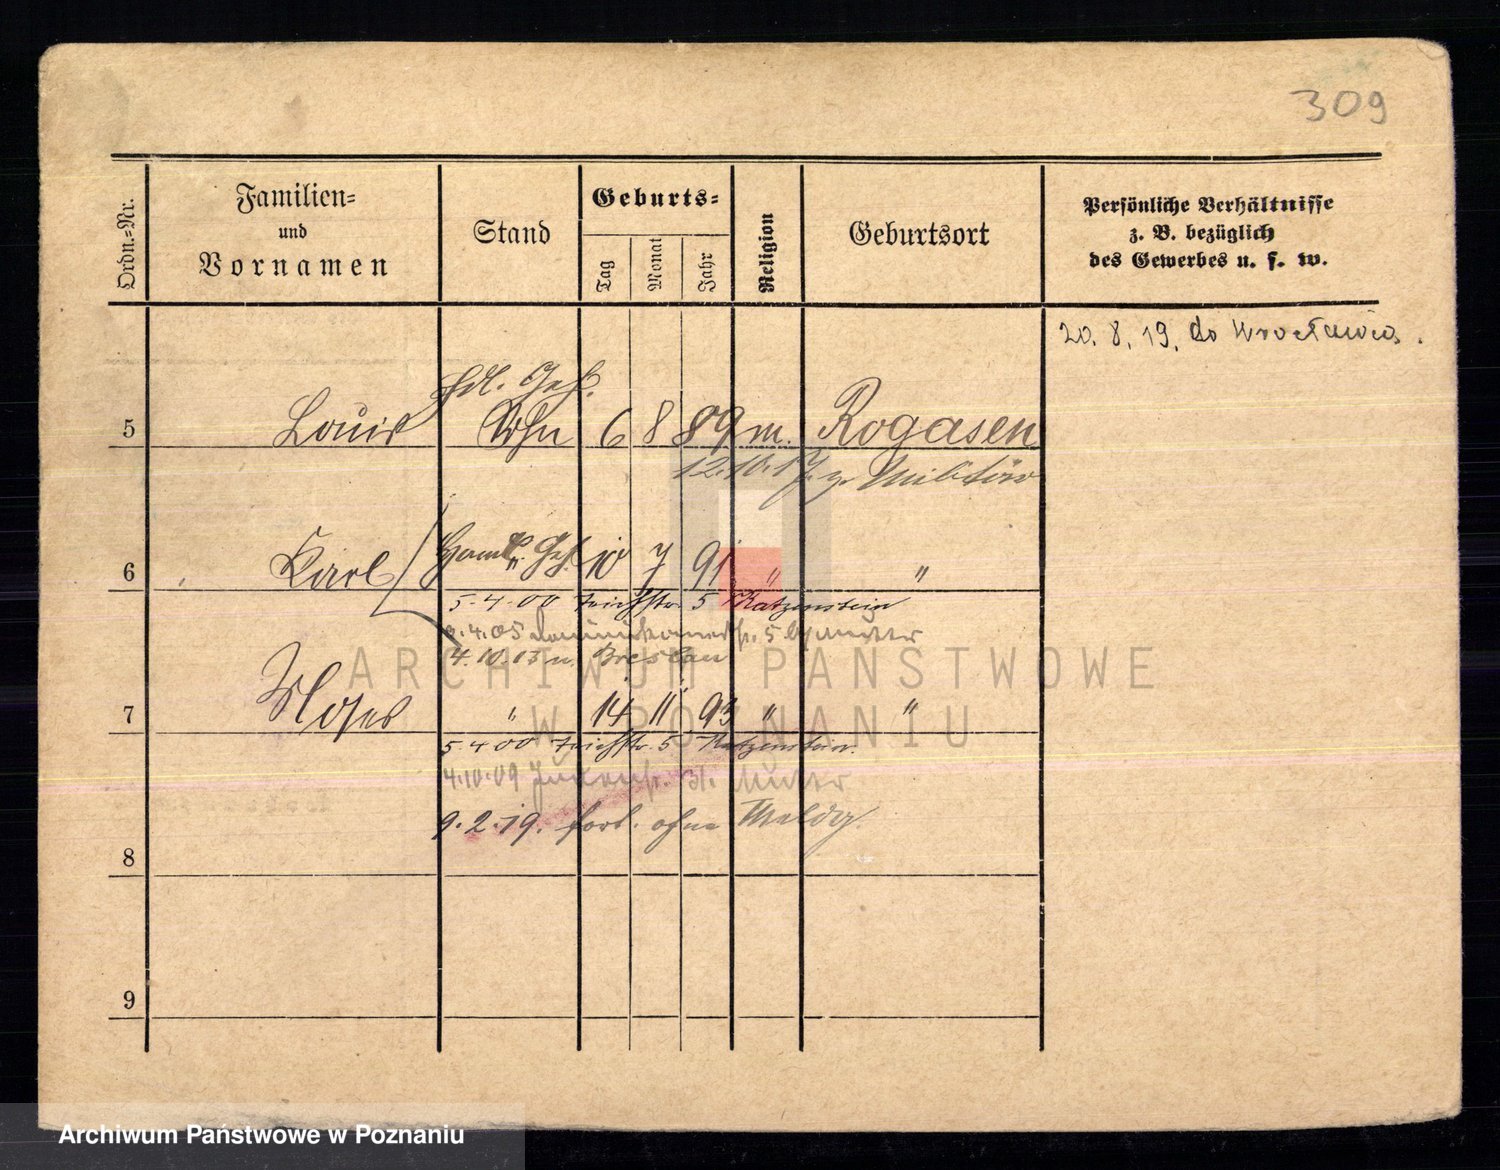 309
Ordn.-Nr.
Familien-
und
Vornamen
Stand
Geburts-
Tag
Monat
Jahr
Religion
Geburtsort
Persönliche Verhältnisse
z. B. bezüglich
des Gewerbes u. s. w.
20. 8. 19. do Wrocławia.
Hdl. Geh.
5 Louis Sohn 6 8 89 m. Rogasen
12.10.17. z. Militär
6 Karl Handl. Geh. 10 7 91 " "
5.4.00 5 Katzenstein
4.05 5 b/ Mutter
4.10.13 n. Breslau
7 Moses " 14 11 93 " "
5.4.00 5 Katzenstein
4.10.09 31. Mutter
9.2.19. fort. ohne Meldg.
8
9
ARCHIWUM PAŃSTWOWE
W POZNANIU
Archiwum Państwowe w Poznaniu